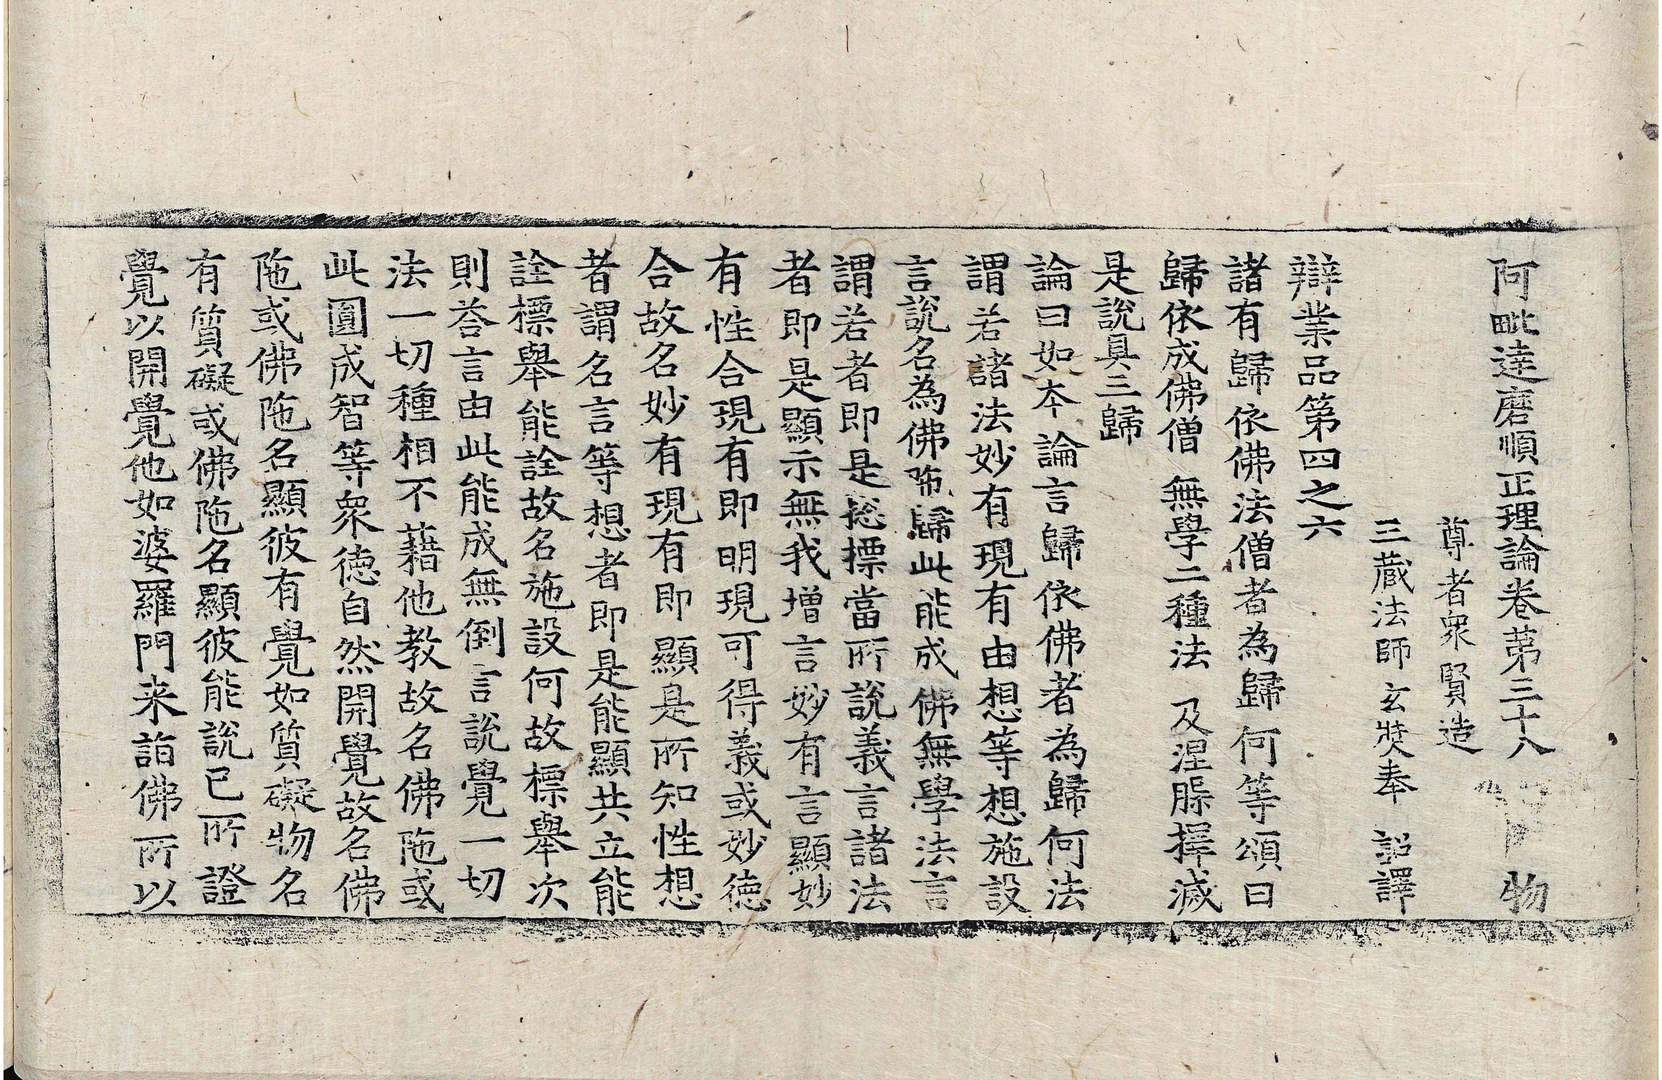 阿毗達磨順正理論卷苐三十八 物
尊者衆賢造
三蔵法師玄奘奉 詔譯
辯業品第四之六
諸有歸依佛法僧者為歸何等頌曰
歸依成佛僧 無學二種法 及涅槃擇滅
是說具三歸
論曰如夲論言歸依佛者為歸何法
謂若諸法妙有現有由想等想施設
言說名為佛陁歸此能成佛無學法言
謂若者即是捴標當所說義言諸法
者即是顯示無我增言妙有言顯妙
有性合現有即明現可得義或妙徳
合故名妙有現有即顯是所知性想
者謂名言等想者即是能顯共立能
詮標舉能詮故名施設何故標舉次
則荅言由此能成無倒言說覺一切
法一切種相不藉他教故名佛陁或
此圓成智等衆徳自然開覺故名佛
陁或佛陁名顯彼有覺如質礙物名
有質礙或佛陁名顯彼能說已所證
覺以開覺他如婆羅門来詣佛所以